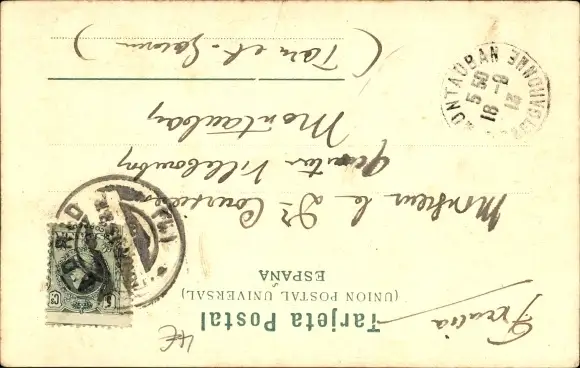 Tarjeta Postal
(UNION POSTAL UNIVERSAL)
ESPAÑA
Monsieur le Dr
Quartier Villebourbon
Montauban
(Tarn et-Garonne)
MONTAUBAN
5 50
18 -8
13
TARN-ET-GARONNE
4€